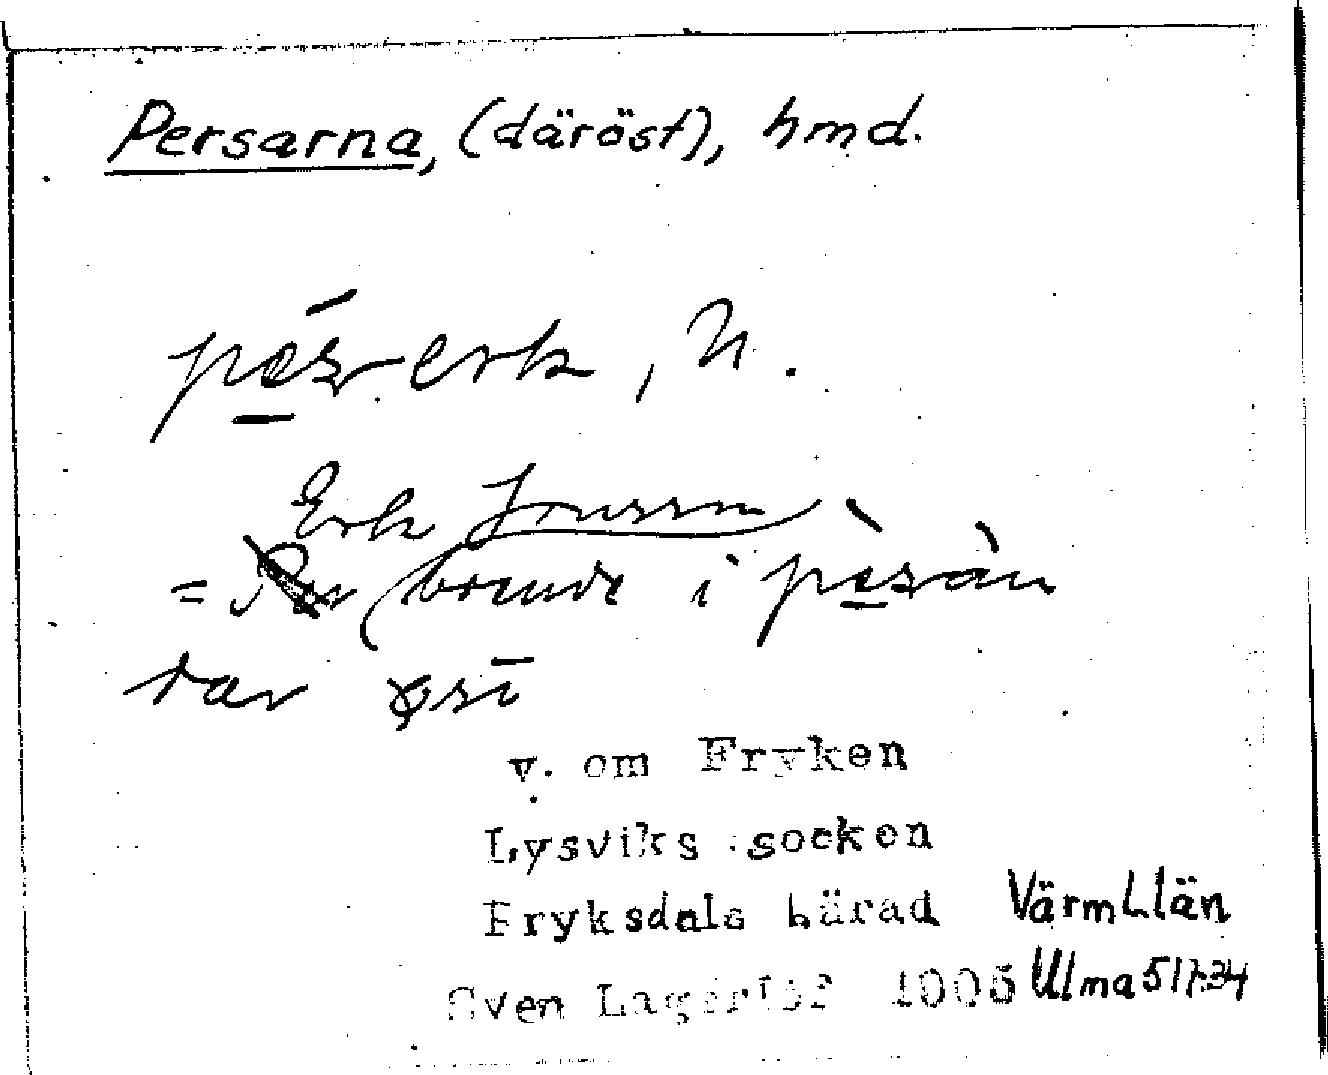 Persarna, (däröst), hmd.
pesərerk, N.
Erk Jonssm
= (boende i pesàn
dar øsi
v. om Fryken
Lysviks socken
Fryksdals härad Värml. län
Sven Lagerlöf 1905 Ulma 517:34